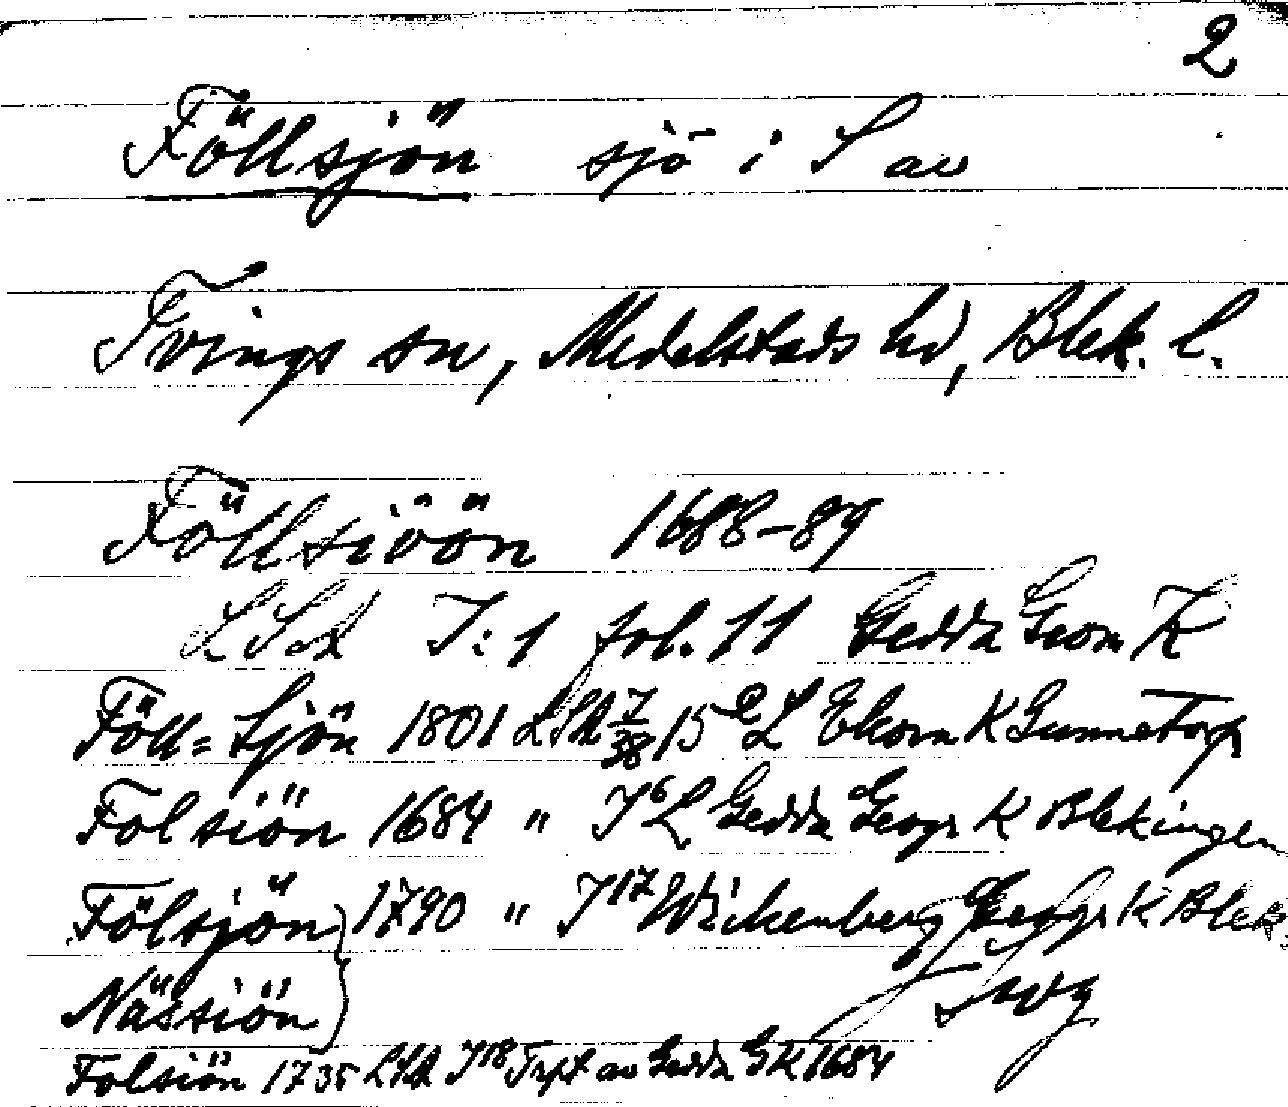 2
Föllsjön sjö i S av
Tvings sn, Medelstads hd, Blek. l.
Föllsiöön 1688-89
LSA I:1 fol. 11 Gedda Geom K
Föll= Sjön 1801 LSA 15 L Ekorn K Gunnetorp
Folsiön 1684 " I 6 L Gedda Geogr K Blekingen
Fölsjön } 1790 " I 17 Wickenberg Geogr K Blek.
Nässiön
Folsiön 1735 LSA I 18 Trpt av Gedda GK 1684